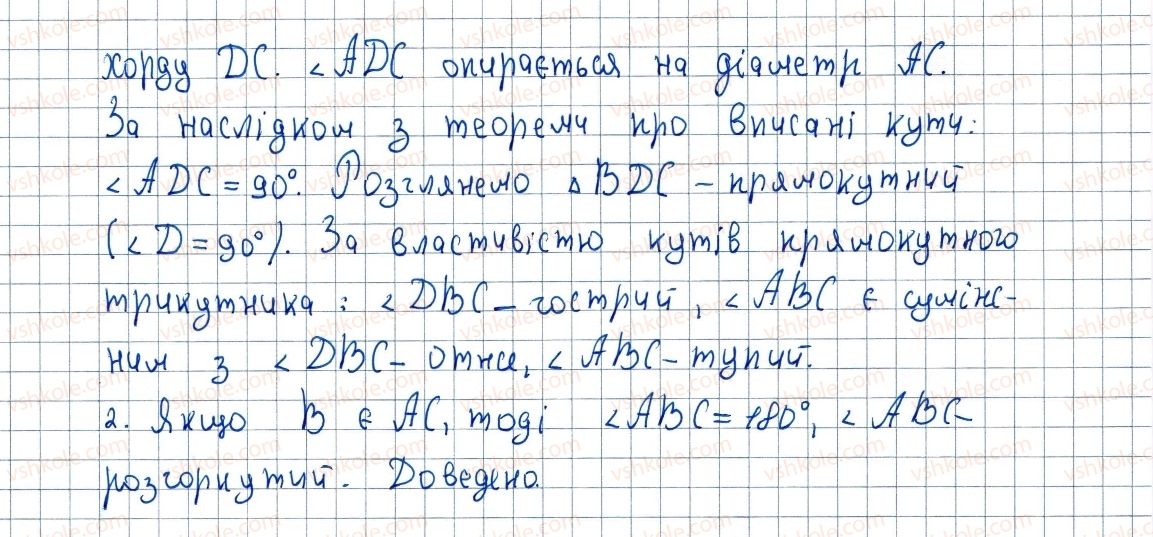 хорду DC. ∠ADC опирається на діаметр AC.
За наслідком з теореми про вписані кути:
∠ADC = 90°. Розглянемо △BDC – прямокутний
(∠D = 90°). За властивістю кутів прямокутного
трикутника: ∠DBC – гострий, ∠ABC є суміж-
ним з ∠DBC – отже, ∠ABC – тупий.
2. Якщо B є AC, тоді ∠ABC = 180°, ∠ABC –
розгорнутий. Доведено.